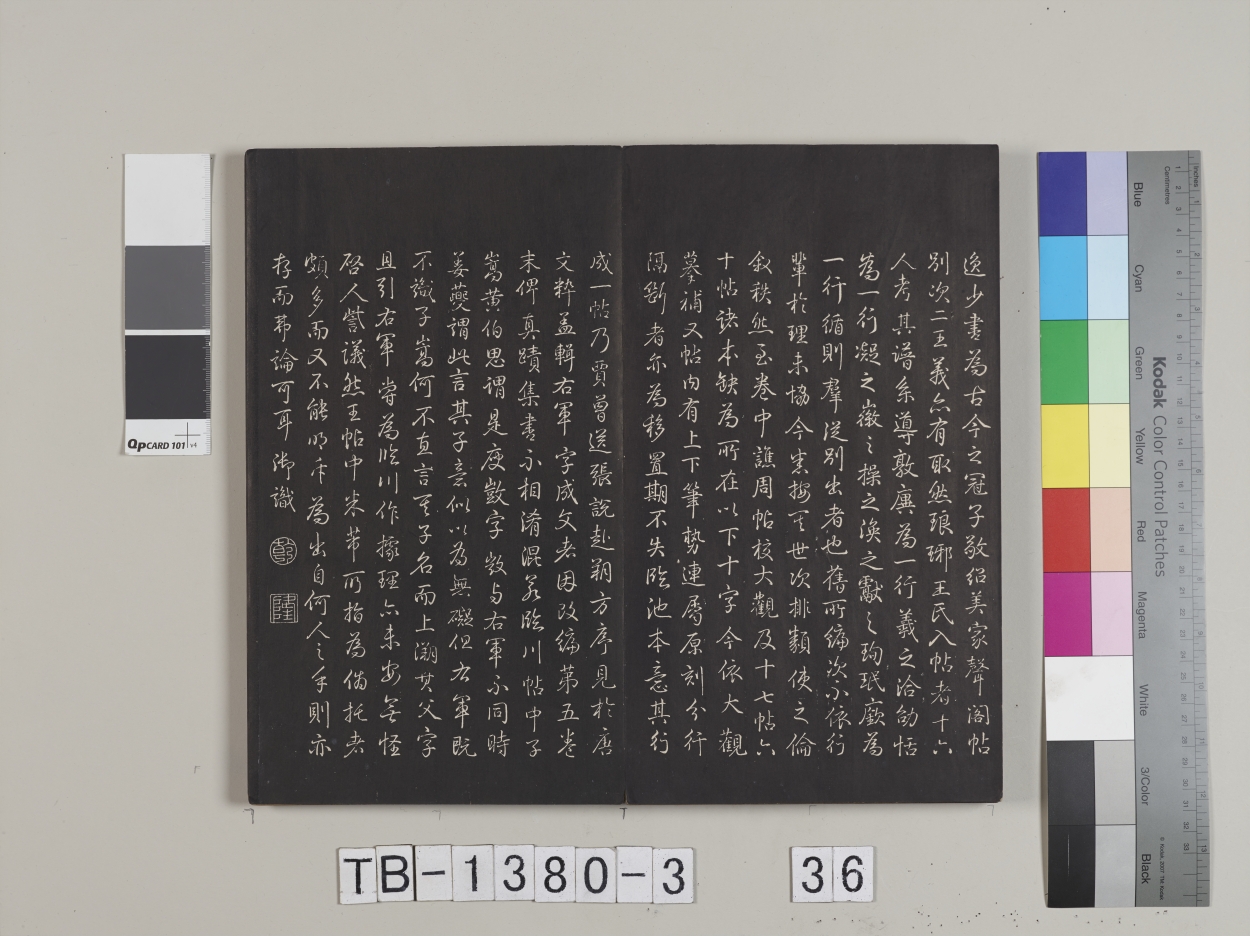 逸少書為古今之冠子敬紹美家聲閣帖
別次二王義亦有取然琅琊王氏入帖者十六
人考其譜系導敦廙為一行羲之洽劭恬
為一行凝之徽之操之渙之獻之珣珉廞為
一行循則羣從別出者也舊所編次不依行
輩於理未協今悉按其世次排類使之倫
敘秩然至卷中譙周帖校大觀及十七帖六
十帖諸本缺為所在以下十字今依大觀
摹補又帖內有上下筆勢連屬原刻分行
隔斷者亦為移置期不失臨池本意其行
成一帖乃賈曾送張說赴朔方序見於唐
文粹蓋輯右軍字成文者因改編第五卷
末俾真蹟集書不相淆混若臨川帖中子
嵩黃伯思謂是庾敳字敳與右軍不同時
姜夔謂此言其子意似以為無礙但右軍既
不識子嵩何不直言其子名而上溯其父字
且引右軍嘗為臨川作據理亦未安無怪
啓人訾議然王帖中米芾所指為偽托者
頗多而又不能明斥為出自何人之手則亦
存而弗論可耳御識
乾
隆
TB-1380-3 36
QPCARD 101 v4
Kodak Color Control Patches
Blue
Cyan
Green
Yellow
Red
Magenta
White
3/Color
Black
Inches
Centimetres